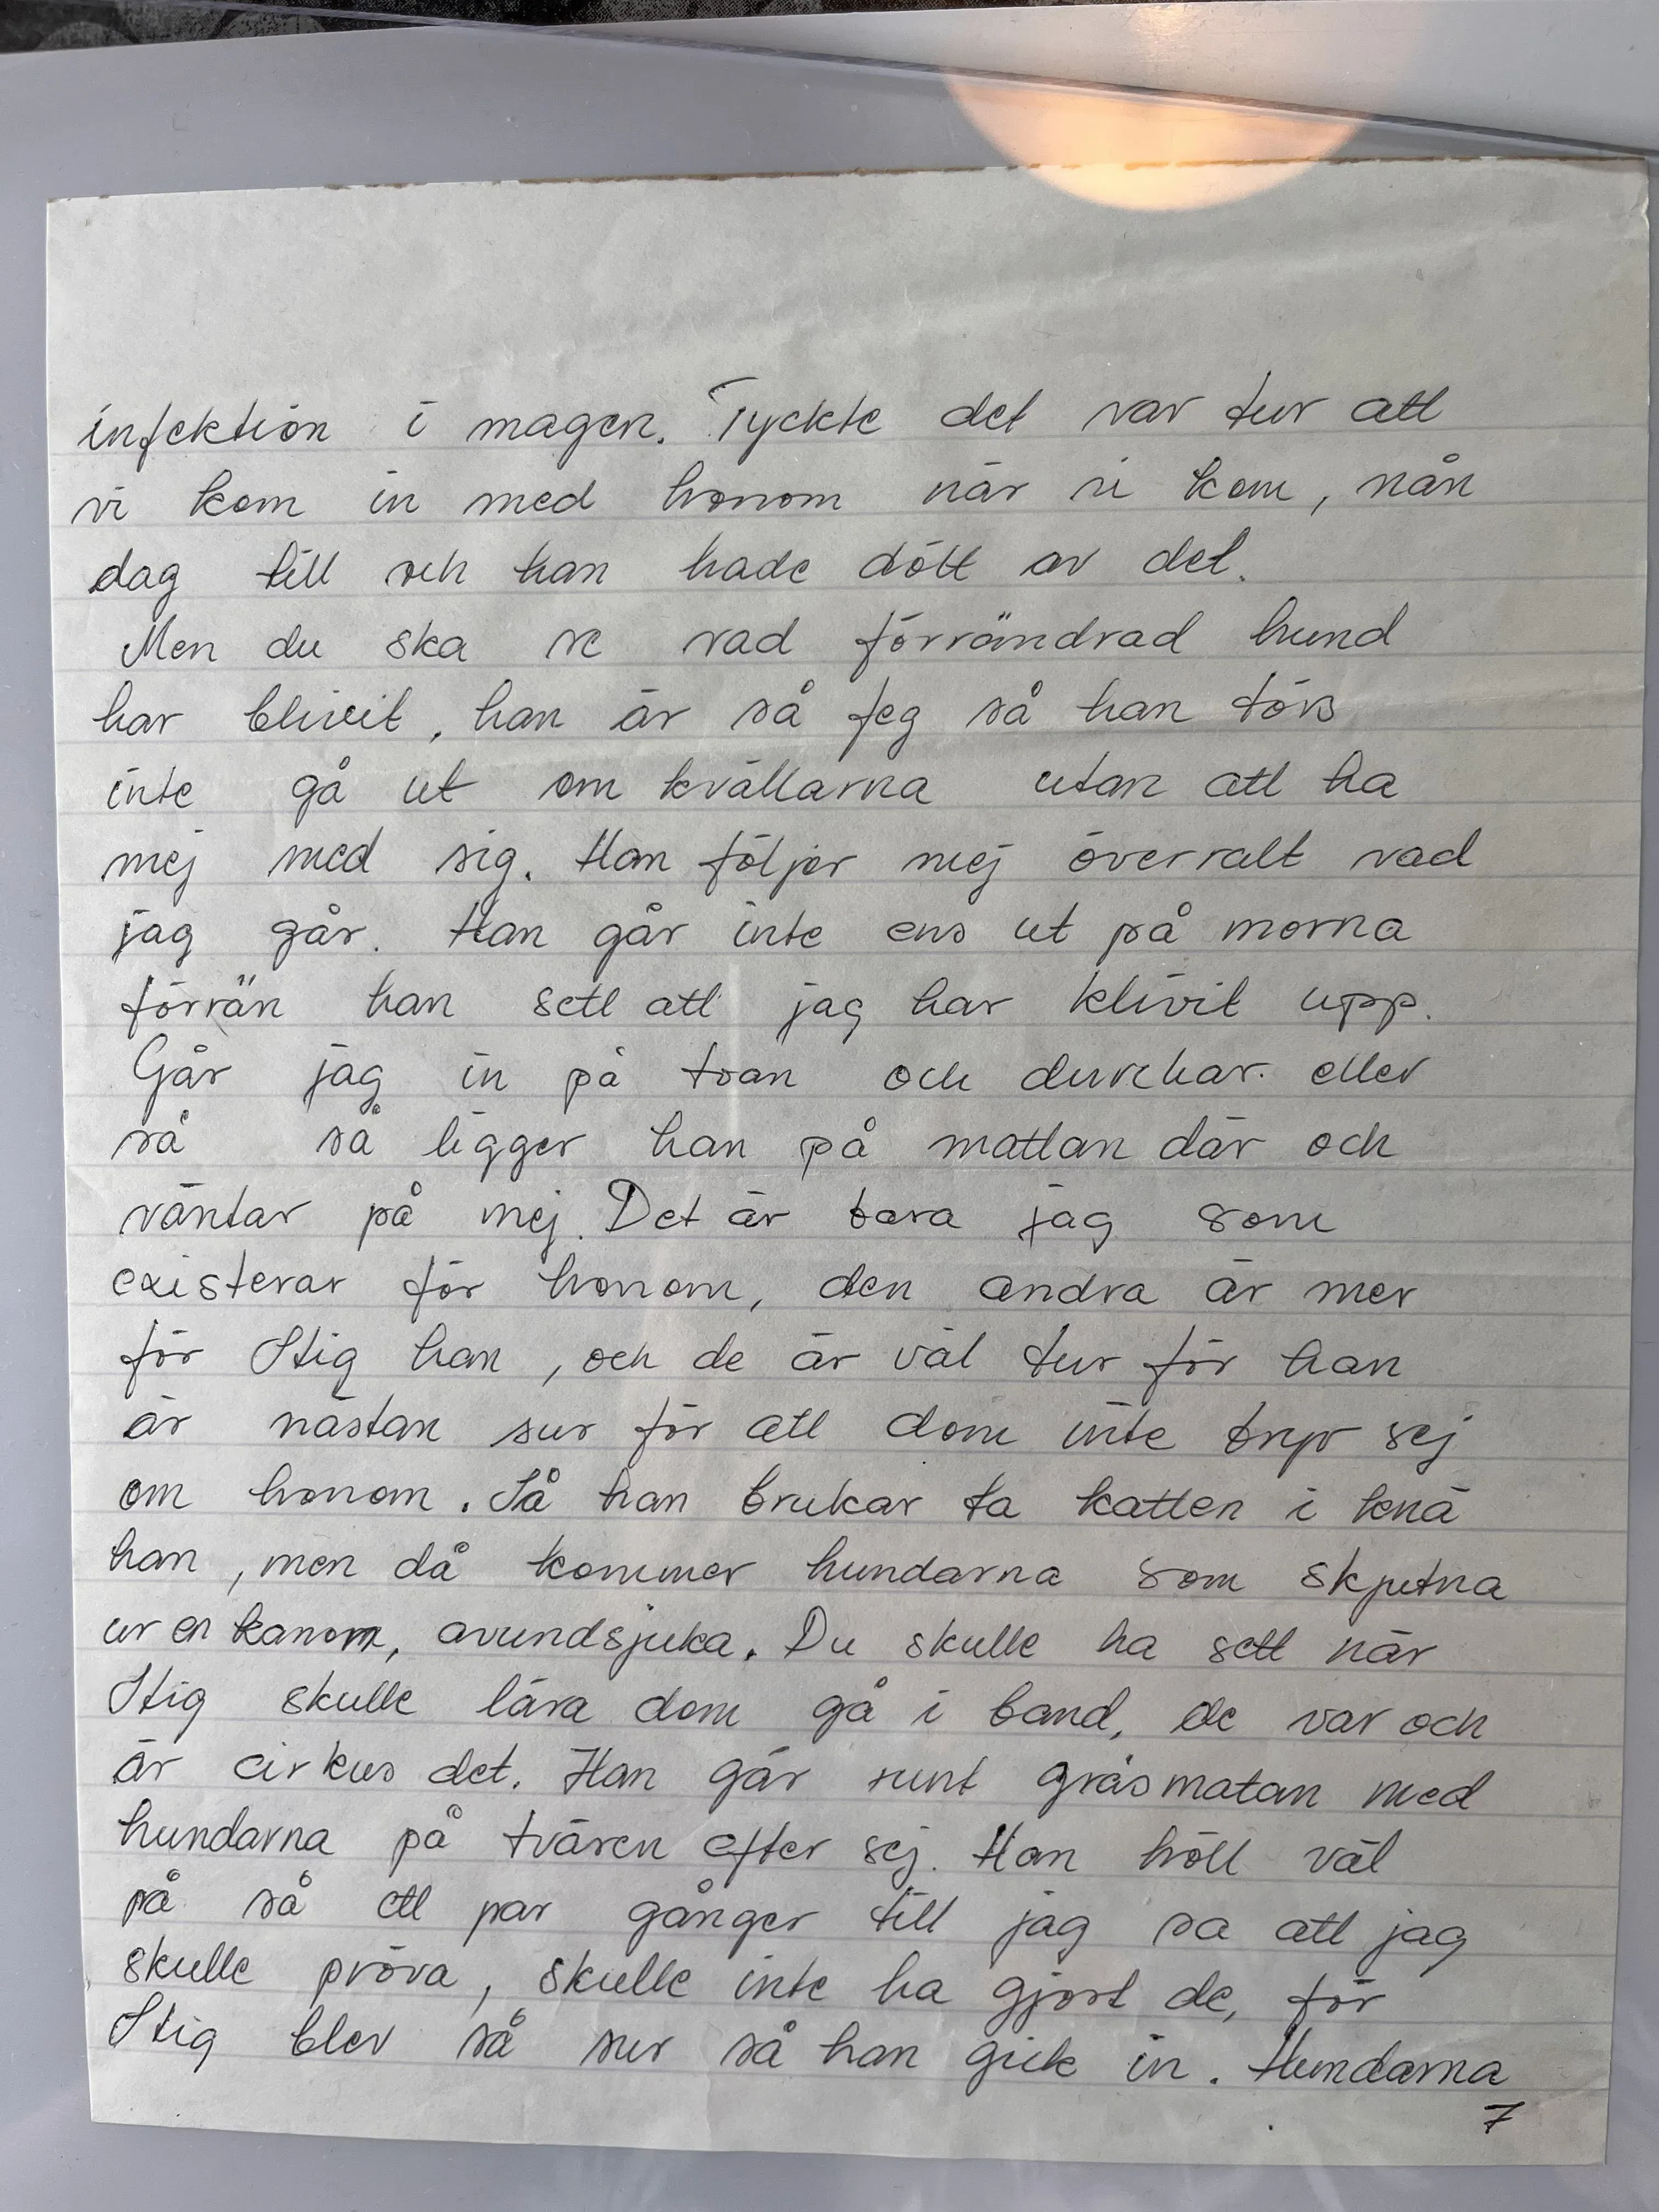 infektion i magen. Tyckte det var tur att
vi kom in med honom när vi kom, nån
dag till och han hade dött av det.
Men du ska se vad förrändrad hund
har blivit, han är så feg så han törs
inte gå ut om kvällarna utan att ha
mej med sig. Han följer mej överralt vad
jag går. Han går inte ens ut på morna
förrän han sett att jag har klivit upp.
Går jag in på toan och duschar eller
så så ligger han på mattan där och
väntar på mej. Det är bara jag som
existerar för honom, den andra är mer
för Stig han, och de är väl tur för han
är nästan sur för att dom inte bryr sej
om honom. Så han brukar ta katten i knä
han, men då kommer hundarna som skjutna
ur en kanom, avundsjuka. Du skulle ha sett när
Stig skulle lära dom gå i band, de var och
är cirkus det. Han går runt gräsmatan med
hundarna på tvären efter sej. Han höll väl
på så ett par gånger till jag sa att jag
skulle pröva, skulle inte ha gjort de, för
Stig blev så sur så han gick in. Hundarna
7